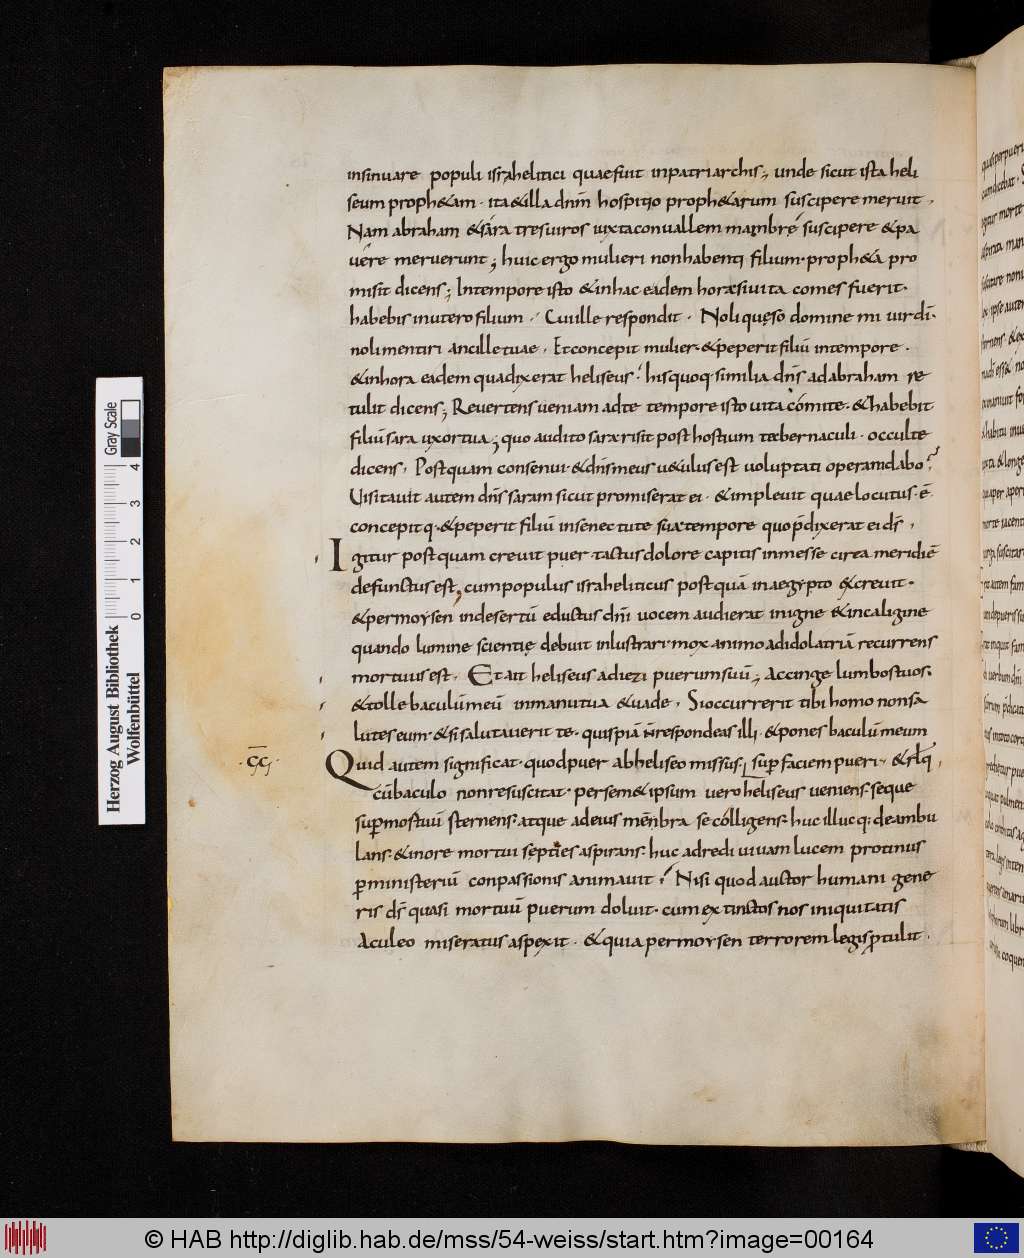 insinuare populi israhelitici quae fuit in patriarchis; unde sicut ista heli
seum proph&am· ita &illa dnm̄ hospitio proph&arum suscipere meruit,
Nam abraham & sára tres uiros iuxta conuallem mambrę suscipere & pa
uére meruerunt; huic ergo mulieri non habenti filium· proph&a pro
misit dicens; In tempore isto & in hac eadem hora si uita comes fuerit·
habebis in utero filium· Cui illa respondit· Noli quęso domine mi uir dī·
noli mentiri ancille tuae· Et concepit mulier· & peperit filiū in tempore·
& in hora eadem qua dixerat heliseus· his quoq· similia dn̄s ad abraham re
tulit dicens; Reuertens ueniam ad te tempore isto uita comite· & habebit
filiū sara uxor tua; quo audito sara risit post hostium tabernaculi· occulte
dicens, Postquam consenui· & dn̄s meus u&ulus est uoluptati operam dabo?
Uisitauit autem dn̄s saram sicut promiserat ei· & impleuit quae locutus·ē·
concepitq·& peperit filiū in senectute sua· tempore quo p̄dixerat ei ds̄,
Igitur postquam creuit puer· tactus dolore capitis in messe circa meridiē
defunctus est, cum populus israheliticus postquā in aegypto excreuit·
& per moysen in desertū eductus dn̄i uocem audierat in igne & in caligine
quando lumine scientię debuit inlustrari· mox animo ad idolatriā recurrens
mortuus est· Et ait heliseus ad iezi puerum suū; Accinge lumbos tuos·
& tolle baculū meū in manu tua & uade, Si occurrerit tibi homo non sa
lutes eum· & si salutauerit te· quispiā n̄ respondeas illi· & pones baculū meum
·CC· Quid autem significat· quod puer ab heliseo missus· super faciem pueri· & rlq̄,
cū baculo non resuscitat· per sem&ipsum uero heliseus ueniens· seque
sup̱ mortuū sternens· atque ad eius mēnbra se cólligens· huc illucq: deambu
lans· & in ore mortui septies aspirans· huc ad rediuiuam lucem protinus
p̱ ministeriū conpassionis animauit, Nisi quod auctor humani gene
ris ds̄ quasi mortuū puerum doluit· cum extinctos nos iniquitatis
Aculeo miseratus aspexit· & quia per moysen terrorem legis p̱tulit·
Herzog August Bibliothek
Wolfenbüttel
0 1 2 3 4
Gray Scale
© HAB http://diglib.hab.de/mss/54-weiss/start.htm?image=00164